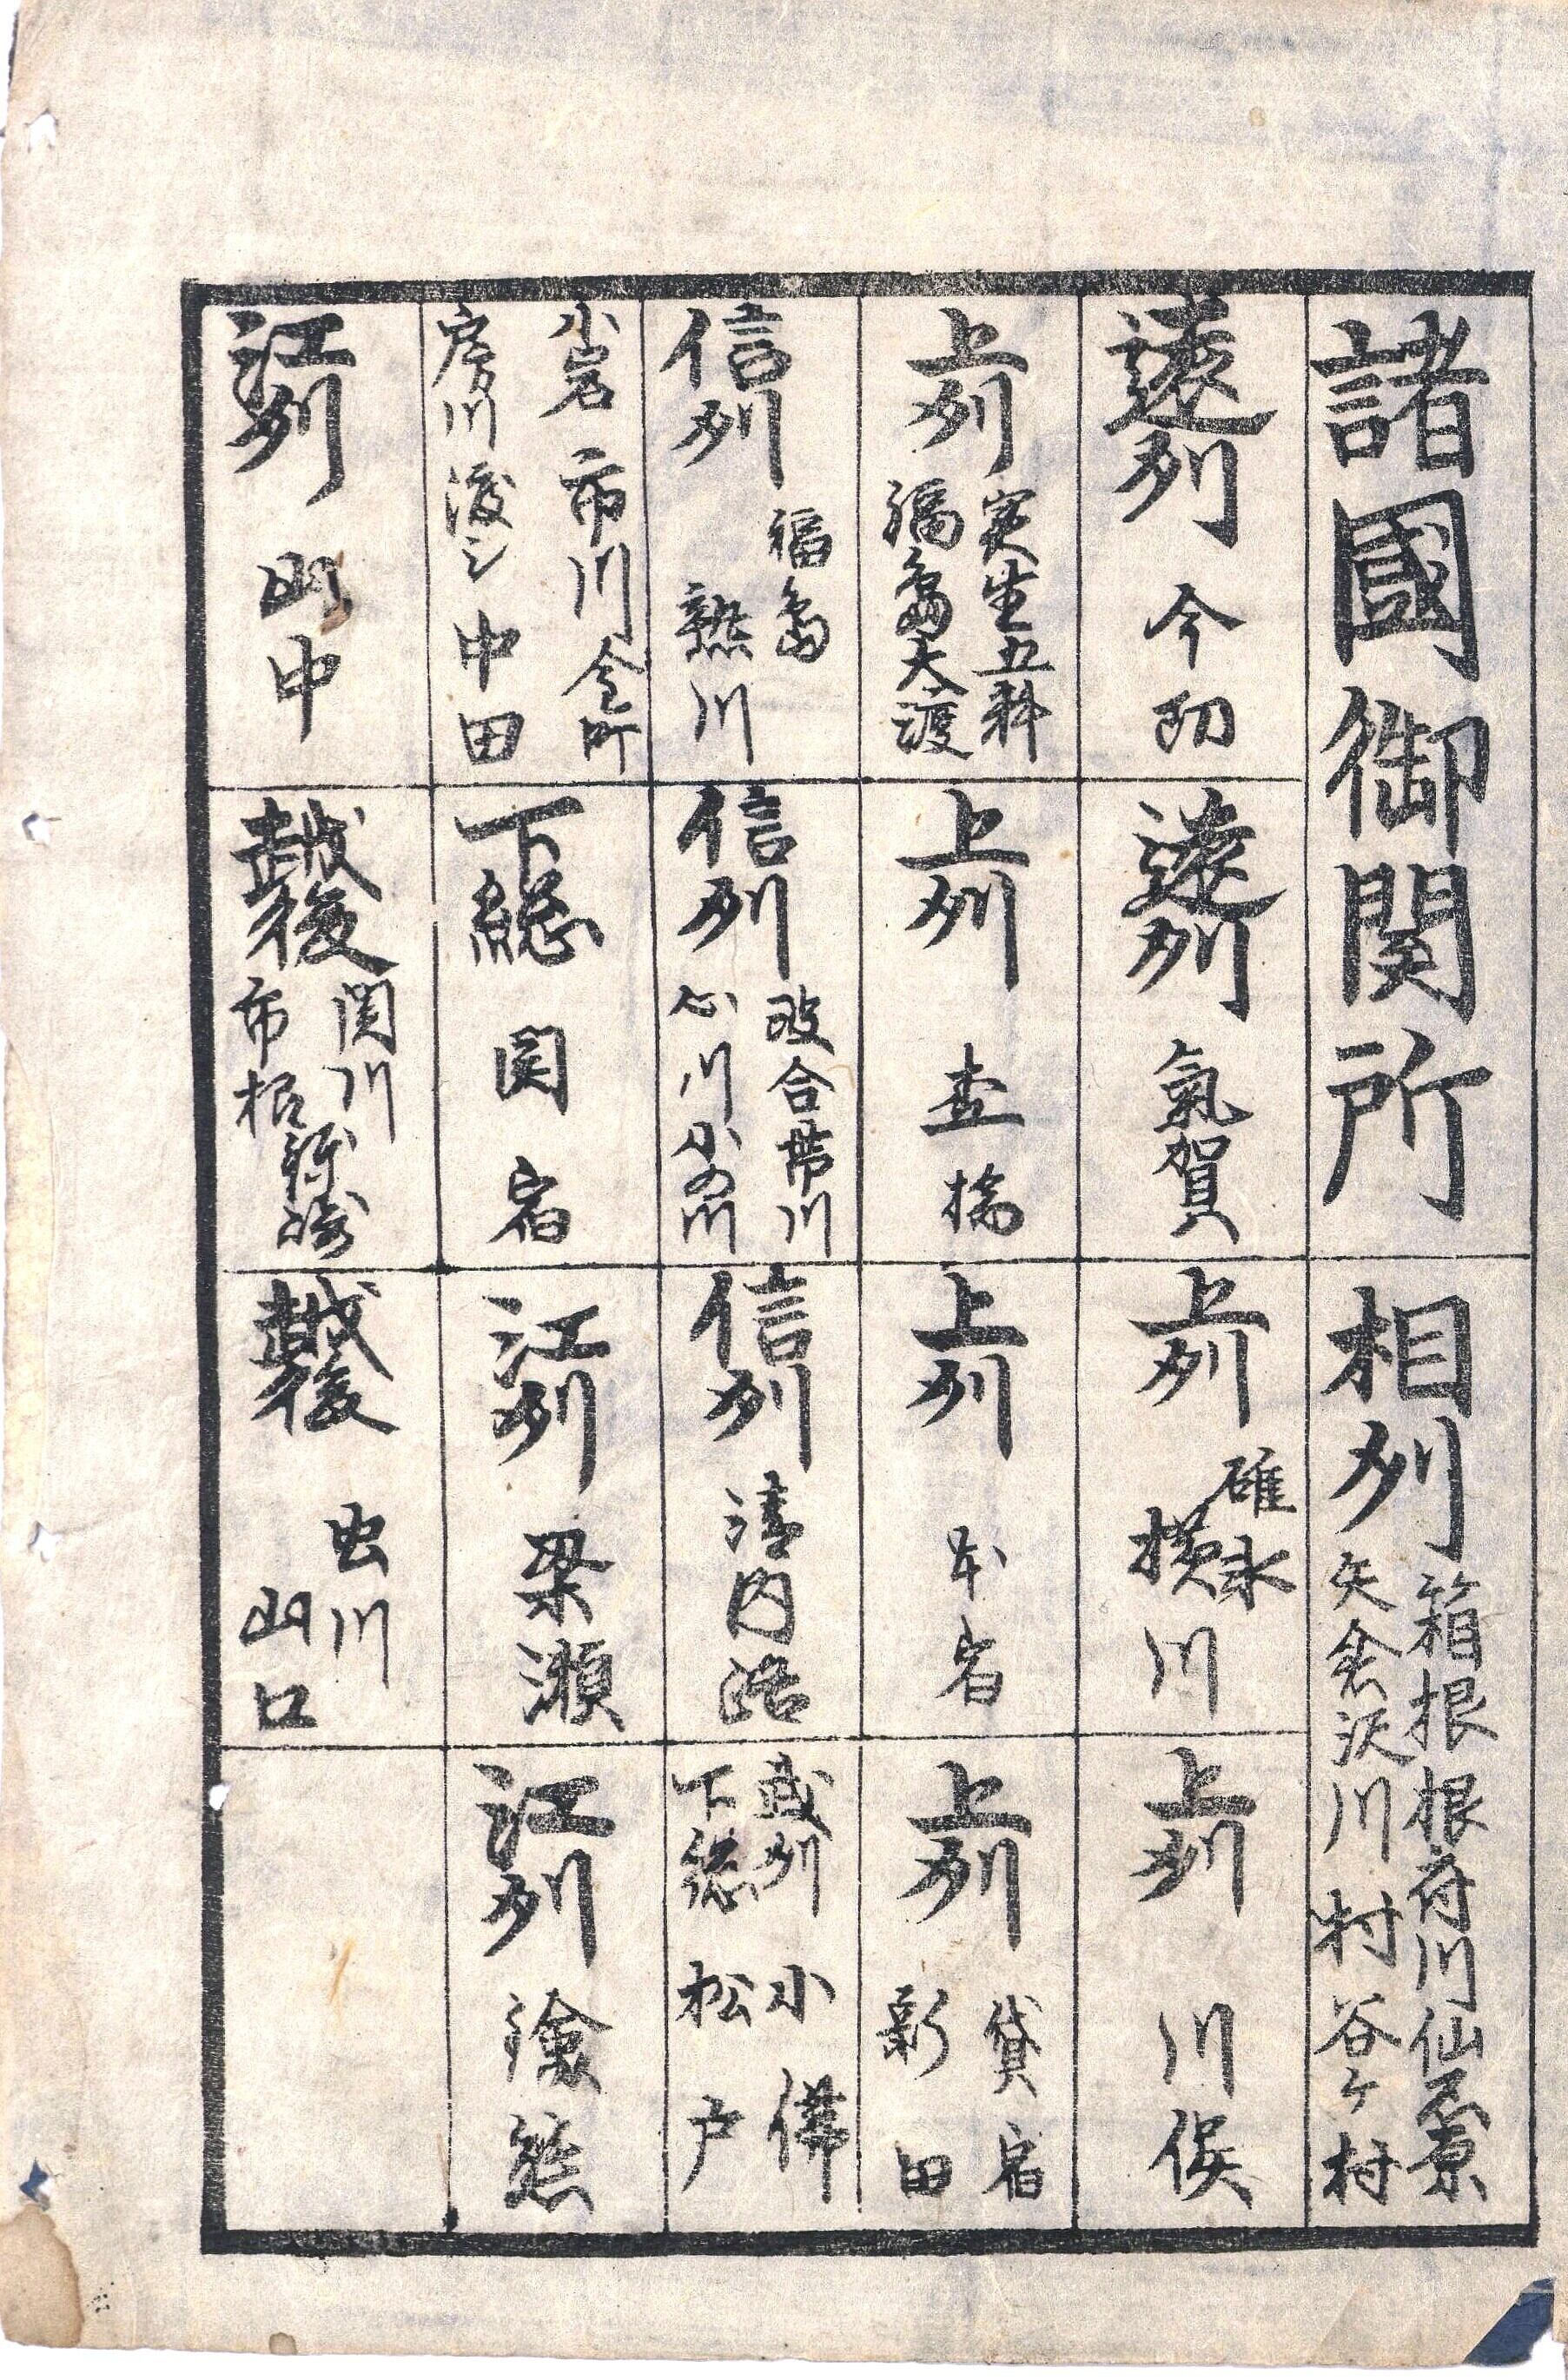 諸國御関所
相州
箱根根府川仙石原
矢倉沢川村谷ケ村
遠州
今切
遠州
氣賀
上州
碓氷
横川
上州
川俣
上州
実生五料
福島大渡
上州
杢橋
上州
本宿
上州
貸宿
新田
信州
福島
熱川
信州
波合帯川
心川小の川
信州
清内路
武州
小佛
下総
松戸
小岩市川金町
房川渡シ中田
下総
関宿
江州
梁瀬
江州
山中
越後
関川
市振
鉢崎
越後
虫川
山口
江州
熊